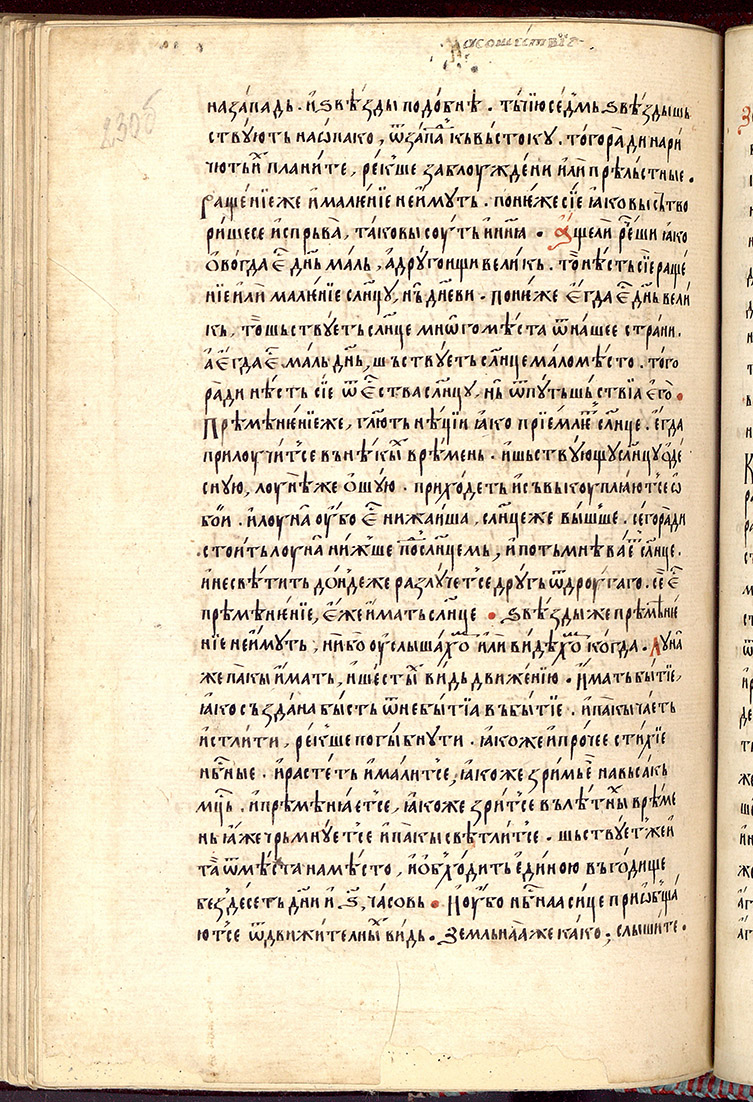 на западь. и ѕвѣзды подобнѣ. тъчїю се́дмь ѕвѣздь шь
ствуютъ наѡпако, ѿ запаⷣ къ въстоку. того ради нари
чють и҆ планите, рек҆ше заблоуждени или прѣльстные.
ращенїе же и҆ малю́нїе не имуть. понеже сїе ꙗко высъ тво
рише се исрьва, таковы соуть и нн҃ꙗ. Аще ли ре́ши ꙗко
ѻвогда е҆с дн҃ь маль, а дроугоищи великь. то нѣсть сїе раще
нїе или малю́нїе сл҃нцу, нь дневи. понеже е҆гда е҆с дн҃ь вели
кь, то шьствуеть сл҃нце мнѡго мѣста ѿ нашее страни.
а е҆гда е҆с маль дн҃ь, шьствуеть сл҃нце мало мѣсто. того
ради нѣсть сїе ѿ е҆ства сл҃нцу, нь ѿ путьшьствїа е҆го.
Прѣмѣненїе же, гл҃ють нѣцїи ꙗко прїемлѥть сл҃нце. е҆гда
прилоучит се въ нѣкыи врѣмень. и шьствующу сл҃нцу ѻде
сную, лоунѣ же ѻшую. приходеть и съвькоупляют се ѡ
бои. и лоуна оубо е҆с нижаиша, сл҃нце же выш҆ше. сего ради
стоить лоуна ниж҆ше по сл҃нцемь, и потьмнѣваѥть сл҃нце.
и не свѣтить дондеже разлучет се дроугь ѿ дроугаго. се е҆с
прѣмѣненїе, еже имать сл҃нце. ѕвѣзды же прѣмѣне
нїе не имуть, ни бо оуслышахѡм или видѣхѡм когда. Луна
же пакы имать, и шесты видь движенїю. Имать бытїе,
ꙗко създана бысть ѿ небытїа въ бытїе. и пакы чаеть
истлити, рек҆ше погыбнути. ꙗкоже и прочее стихїе
нб҃ные. и растеть и малит се, ꙗкоже зрим на высакь
мц҃ь. и прѣмѣняет се, ꙗкоже зрит се въ лѣтны врѣме
нь ꙗже чрьмнует се и пакы свѣтлит се. шьствует же и
та ѿ мѣста на мѣсто, и ѡбходить единою въ годище
без десеть дн҃и и ѕ, часовь. И оубо нб҃наа сице приѡбща
ют се ѿ движителны видь. Земльнаа же како, слышите.